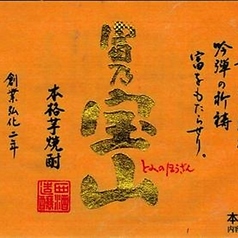 吟弾の祈祷
富をもたらせり。
富乃宝山
とみのほうざん
本格芋焼酎
創業弘化二年
西酒造醸
本
内